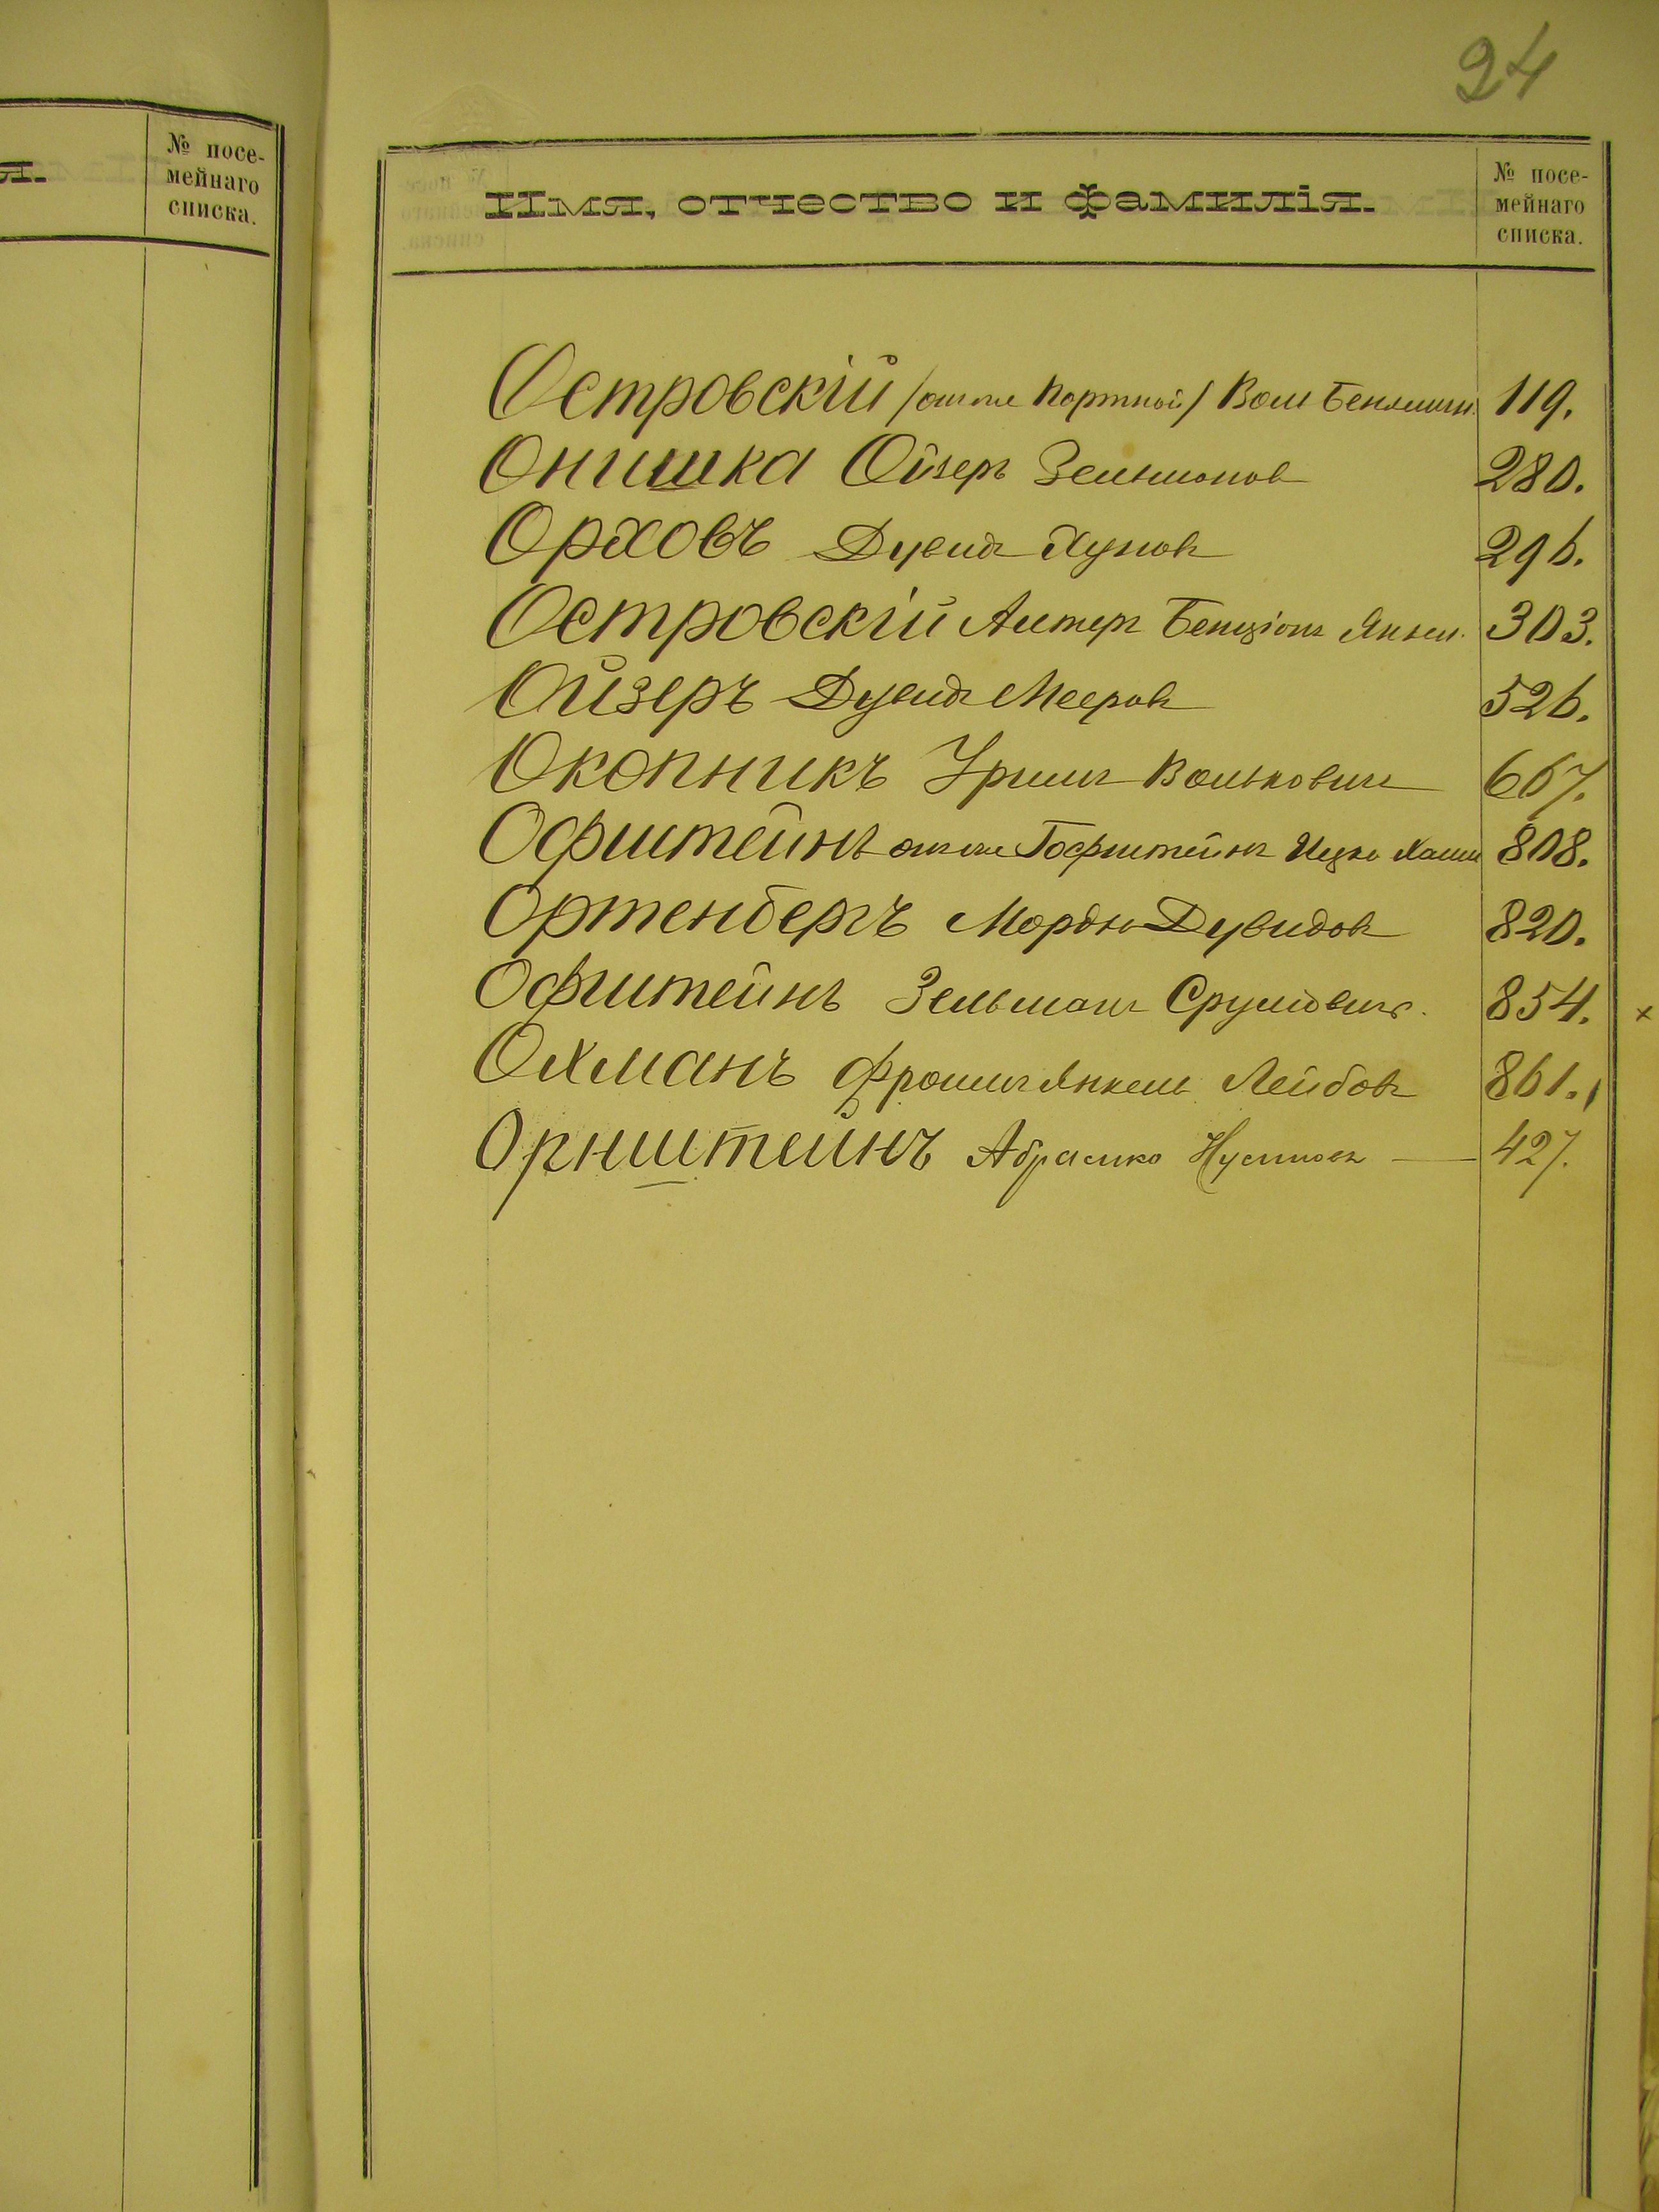 24
я.
№ посе-
мейнаго
списка.
Имя, отчество и фамилія.
№ посе-
мейнаго
списка.
Островскій /онъ же Портной/ Вольф Беньямин. 119.
Онишка Ойзеръ Зельманов 280.
Орховъ Дувидъ Хунов 296.
Островскій Алтеръ Бенціонъ Янкел. 303.
Ойзеръ Дувидъ Мееров 526.
Окопникъ Урышъ Волькович 667.
Офштейнъ онъ же Гофштейнъ Ицко Хаим 808.
Ортенбергъ Мордко Дувидов 820.
Офштейнъ Зельманъ Срулович. 854.
Охманъ Фроимъ Янкель Лейбов 861.
Орнштейнъ Абрамко Нусинов — 427.